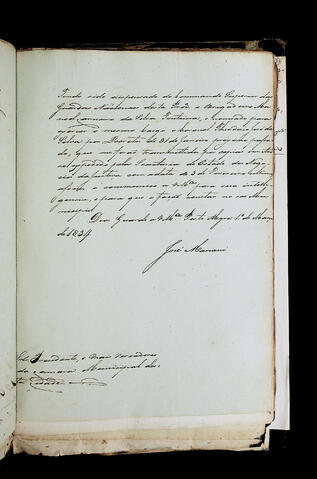 Tendo sido dispensado do Commando Superior das
Guardas Nacionaes desta Prov.ª o Brigadeiro Ma-
noel Carneiro da Silva Fontoura, e nomeado para
exercer o mesmo cargo o Coronel
Silva por Decreto de 21 de Janeiro proximo passa-
do, que me foi transmittido por
expedido pela Secretaria de Estado dos Nego-
cios da Justiça com a data de 3 de Fevereiro ultimo,
assim o communico a V.M.ces para sua intelli-
gencia, e para que o façaõ constar no seo Mu-
nicipio.
Deos Guarde a V.M.ces Porto Alegre 1º de Março
de 1834
José Mariani
Presidente, e mais Vereadores
da Camara Municipal des-
ta Cidade